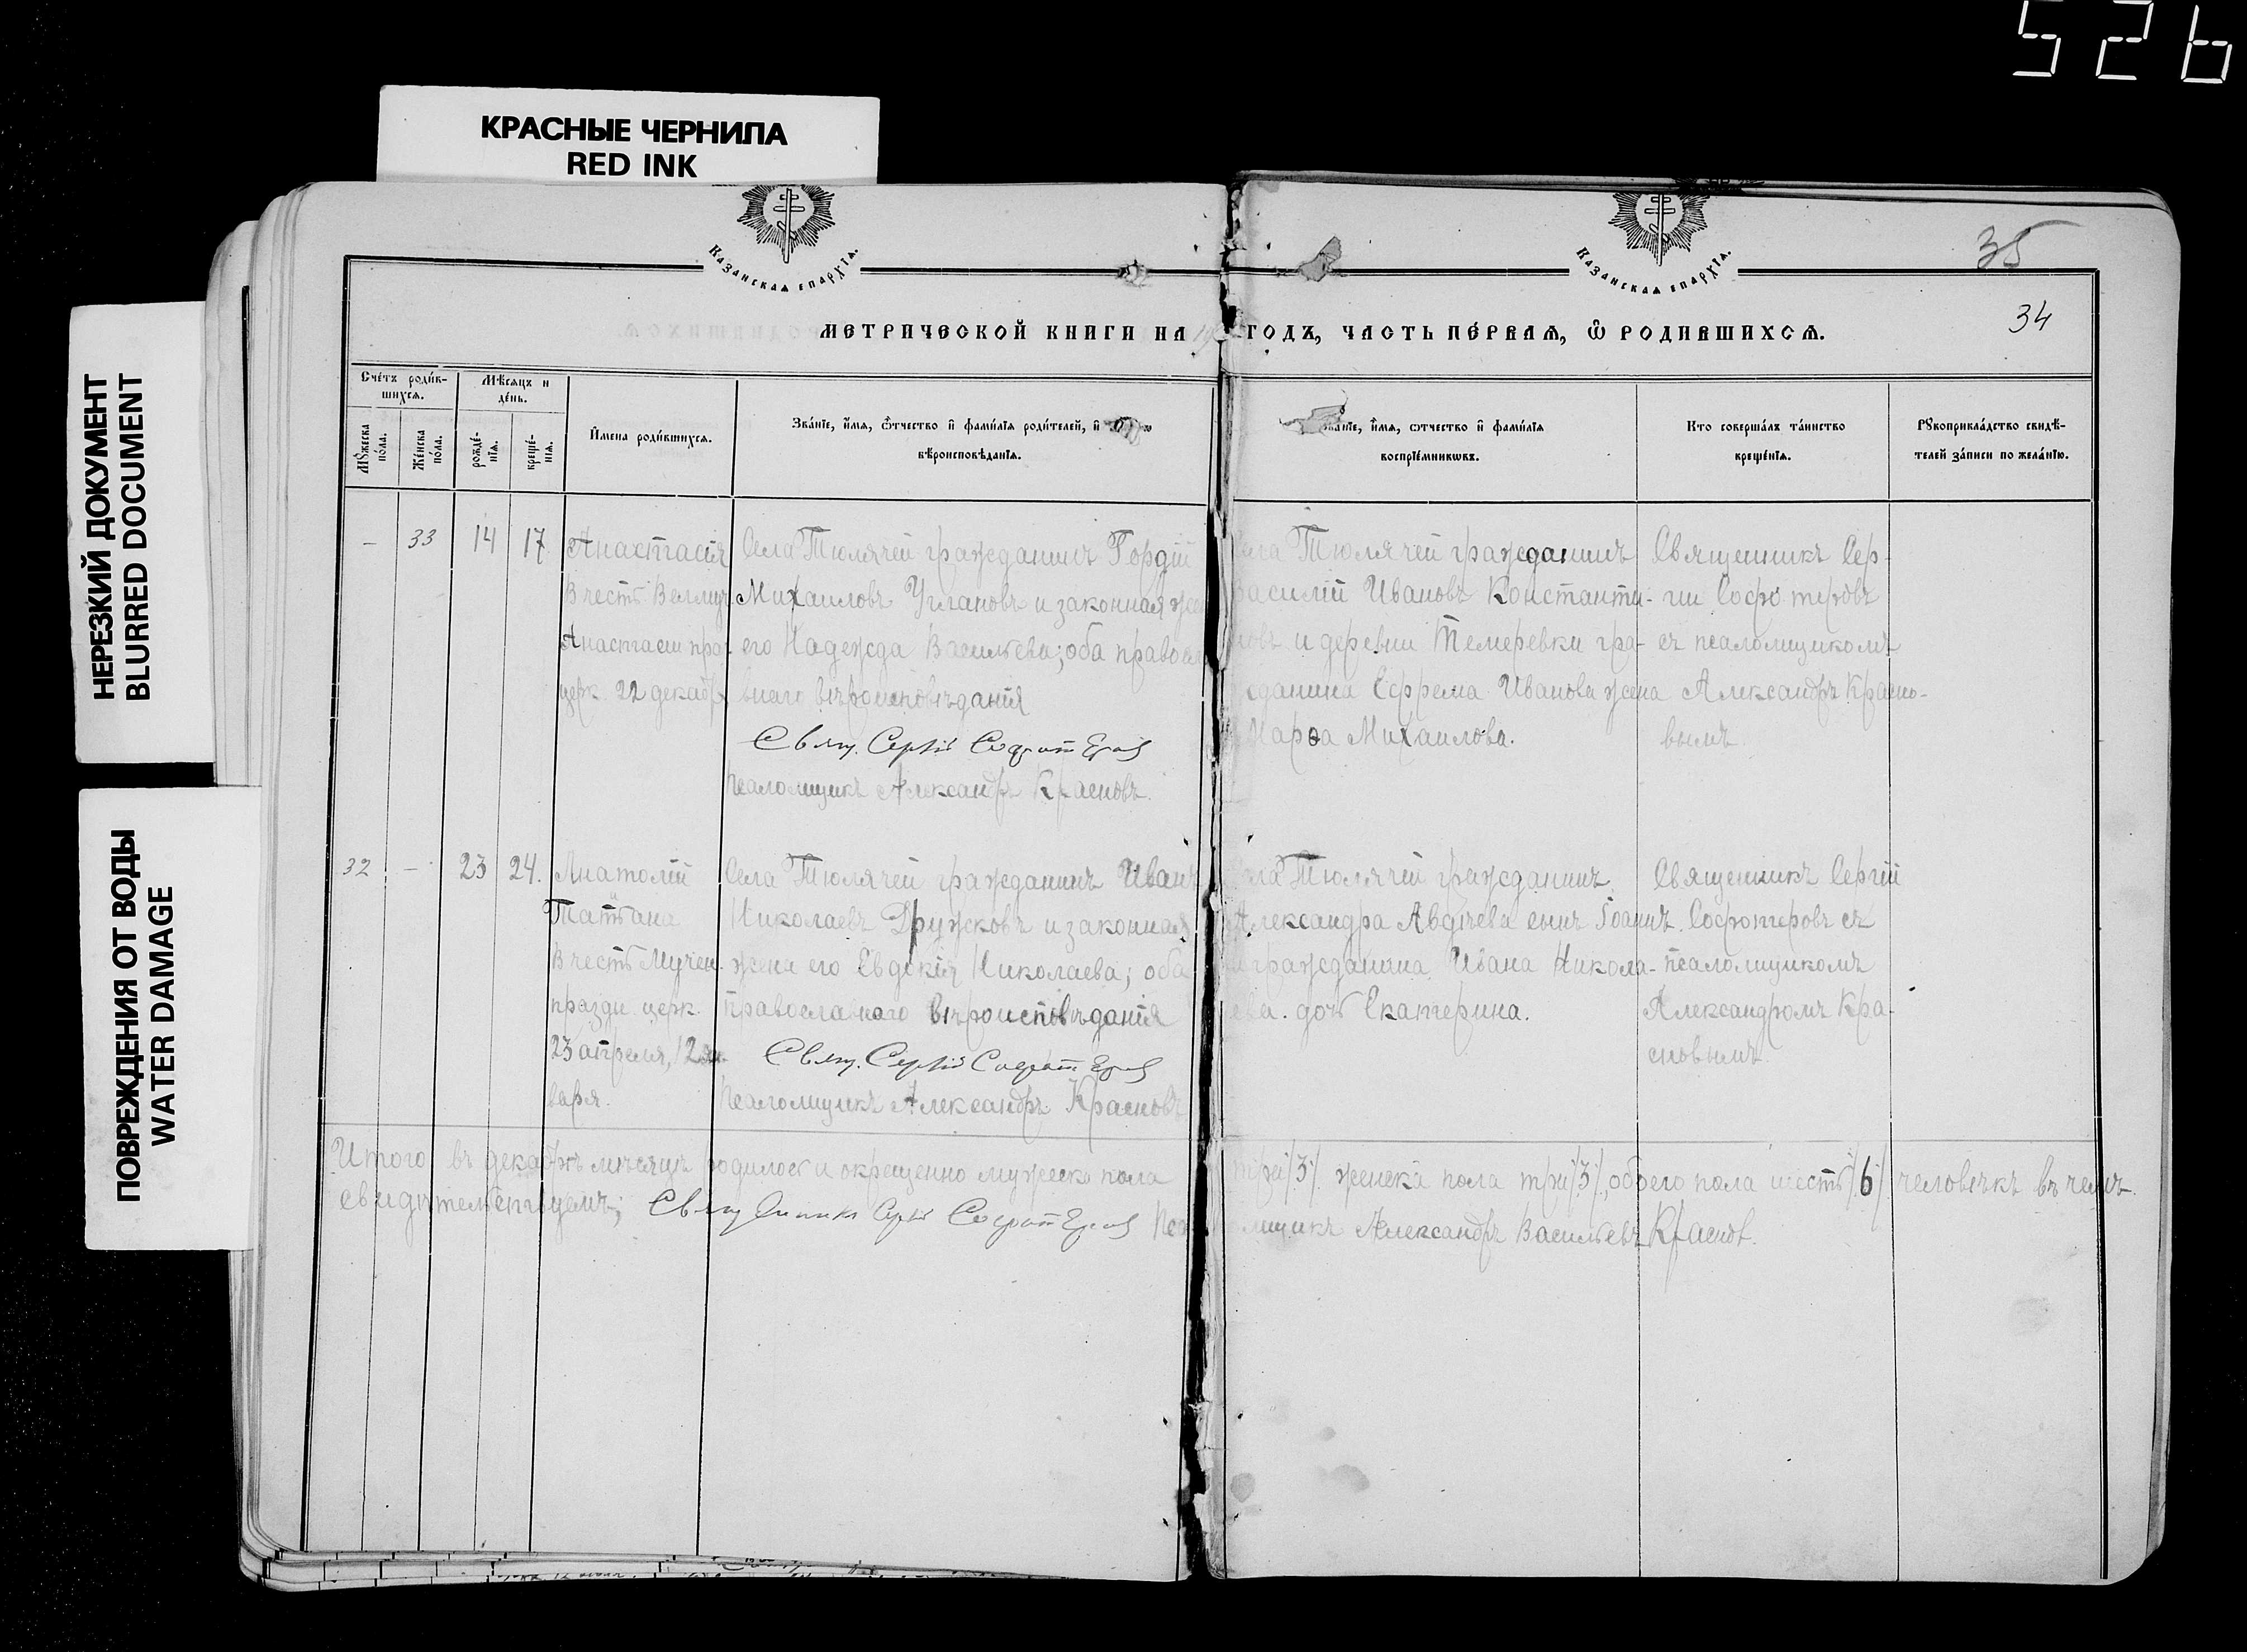 526
КРАСНЫЕ ЧЕРНИЛА
RED INK
НЕРЕЗКИЙ ДОКУМЕНТ
BLURRED DOCUMENT
ПОВРЕЖДЕНИЯ ОТ ВОДЫ
WATER DAMAGE
Казанская епархїя.
Казанская епархїя.
35
34
Метрической книги на
годъ, часть пе́рвая, ѡ҆ родившихся.
Сче́тъ роди́в-
шихся.
Мѣсяцъ и
де́нь.
Мꙋ́жеска
по́ла.
Же́нска
по́ла.
рожде́-
нїя.
креще́-
нїя.
И҆мена роди́вшихся.
Зва́нїе, и҆́мя, ѻ҆́тчество и҆ фами́лїя роди́телей, и҆
вѣроисповѣ́данїя.
и҆́мя, ѻтчество и҆ фами́лїя
воспрїе́мникѡвъ.
Кто соверша́лъ та́инство
креще́нїя.
Рꙋкоприкла́дство свидѣ́-
телей за́писи по жела́нїю.
- 33 14 17
Анастасія
В честь Велмуч.
Анастасіи праз.
церк. 22 декабр
Села Тюлячей гражданинъ Гордій
Михаиловъ Углановъ и законная жен
его Надежда Васильева; оба правосла
внаго вѣроисповѣданія
Свящ. Сергій Софотеровъ
Псаломщикъ Александръ Красновъ.
Села Тюлячей гражданинъ
Василій Ивановъ Константи-
новъ и деревни Темеревки гра-
жданина Ефрема Иванова жена
Марѳа Михаилова.
Священникъ Сер-
гій Софотеровъ
съ псаломщикомъ
Александръ Красно-
вымъ.
32 - 23 24.
Анатолій
Татіана
В честь Мучен.
праздн. церк.
23 апреля, 12 ян-
варя.
Села Тюлячей гражданинъ Иванъ
Николаевъ Дружковъ и законная
жена его Евдокія Николаева; оба
православнаго вѣроисповѣданія
Свящ. Сергій Софотеровъ
Псаломщикъ Александръ Красновъ
Села Тюлячей гражданинъ
Александра Авдѣева сынъ Іоаннъ
и гражданина Ивана Никола-
ева. дочь Екатерина.
Священникъ Сергій
Софотеровъ съ
псаломщикомъ
Александромъ Кра-
сновымъ.
Итого въ декабрѣ мѣсяцѣ родилось и окрещенно мужеска пола
три /3/ женска пола три /3/, обоего пола шесть /6/ человѣкъ въ чемъ
свидѣтельствуемъ; Священникъ Сергій Софотеровъ
Псаломщикъ Александръ Васильевъ Красновъ.